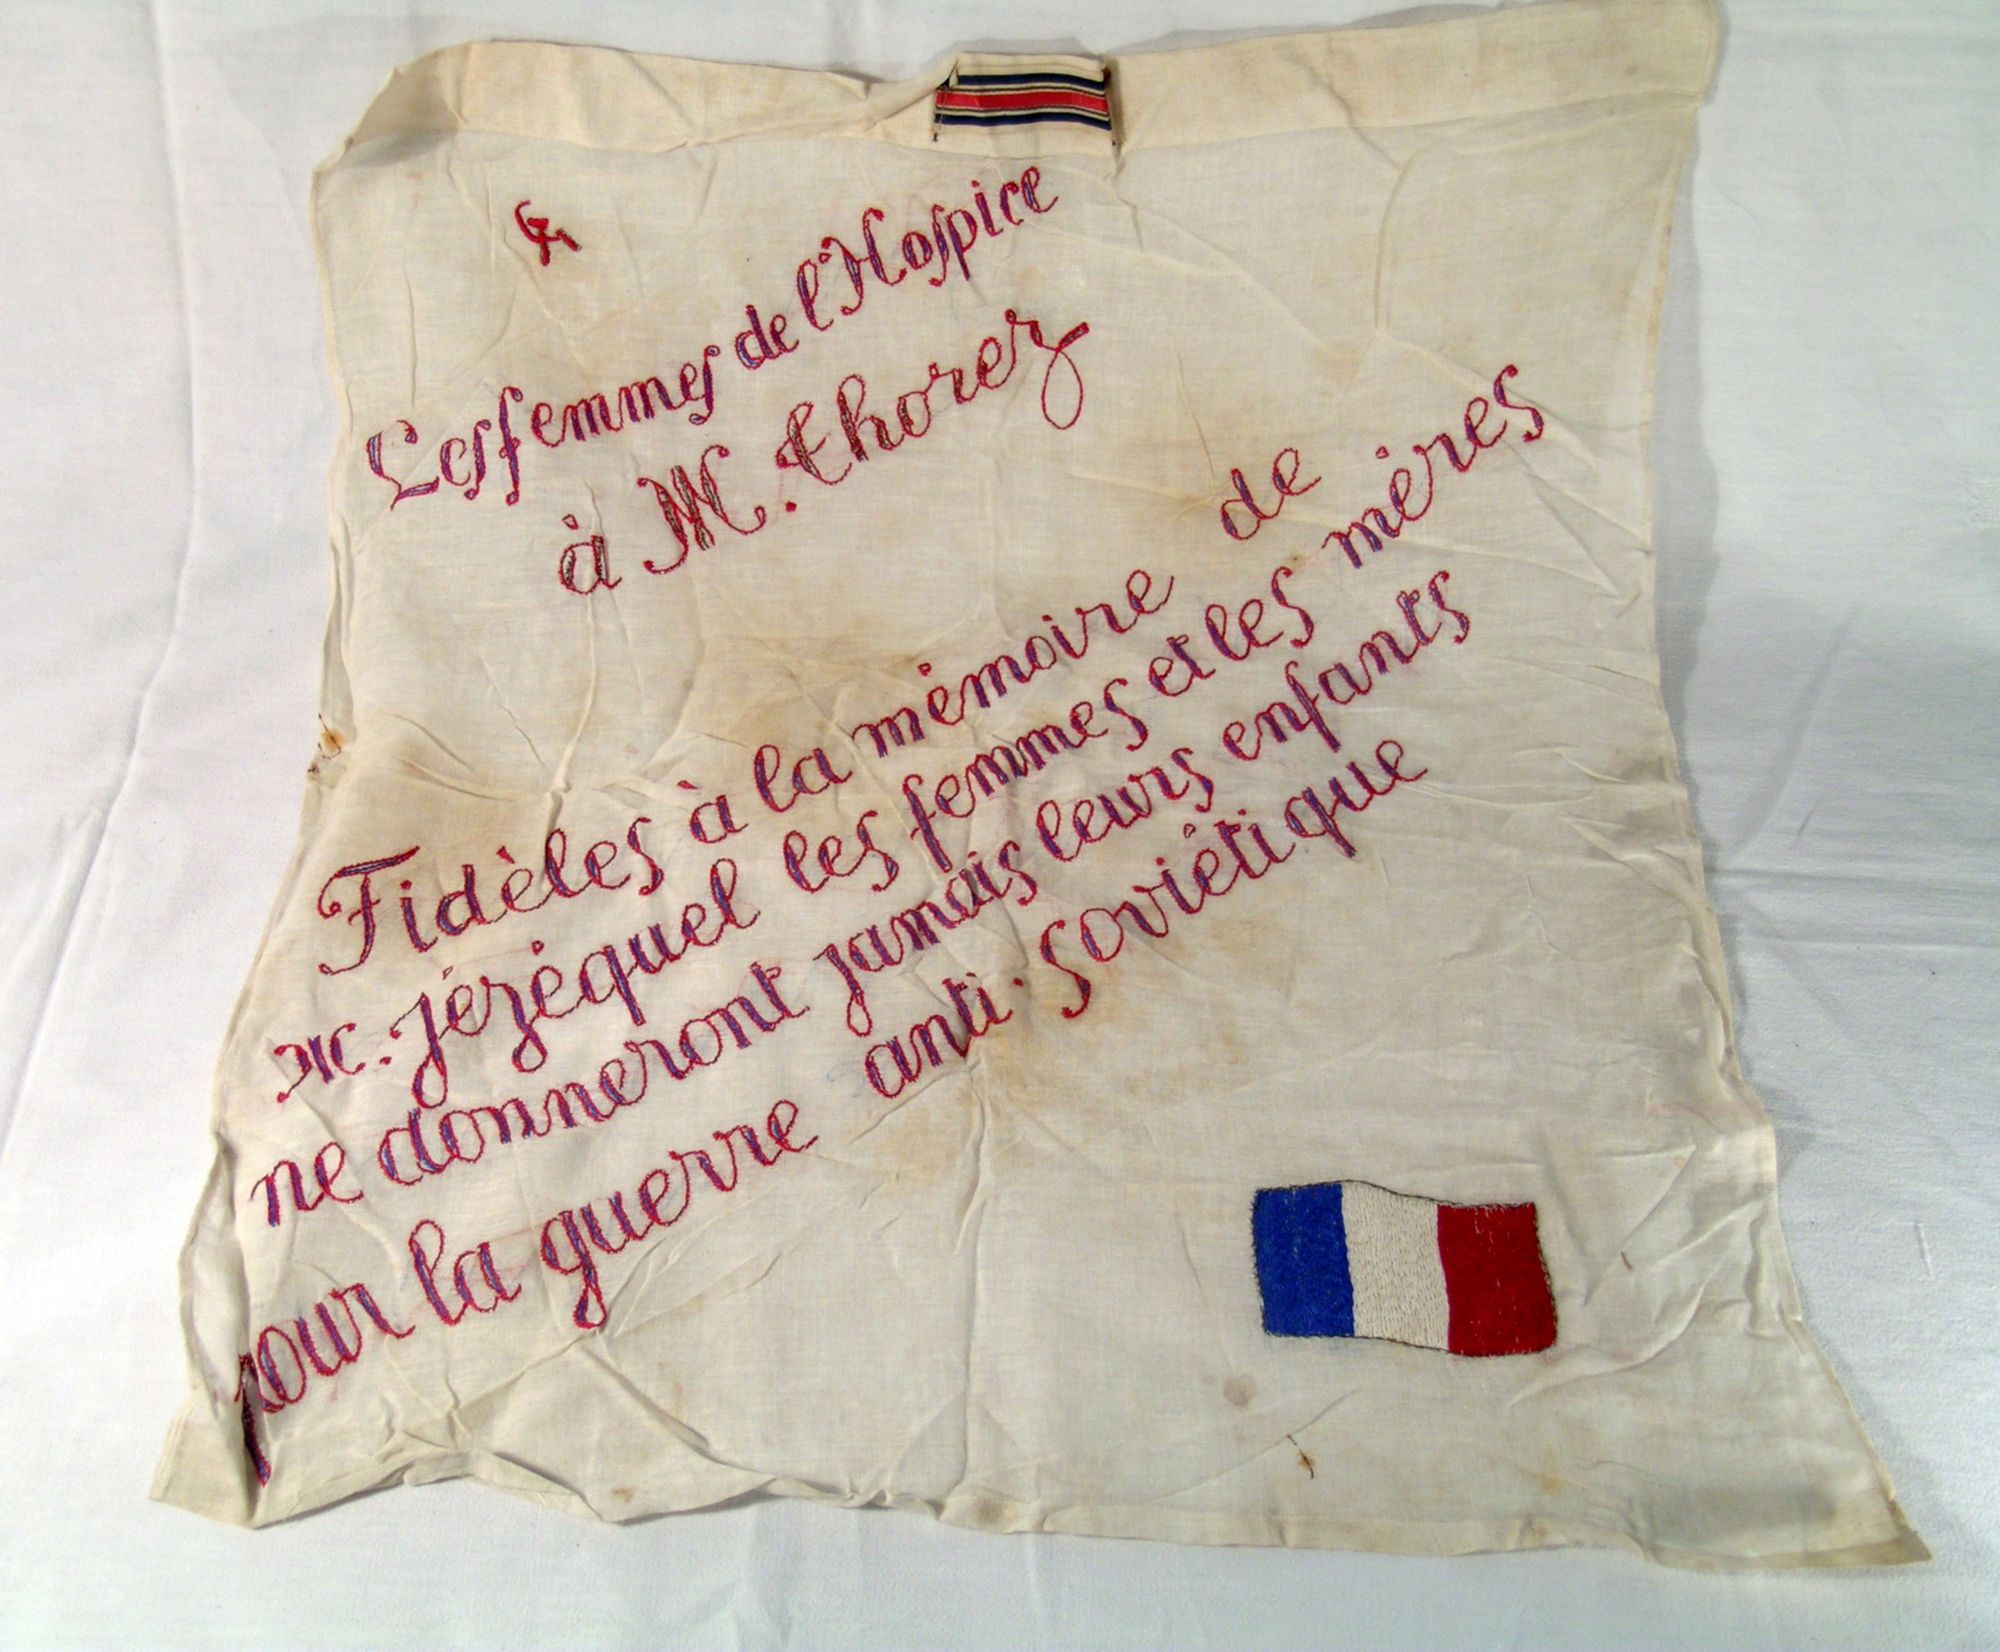 Les femmes de l'Hospice
à M. Thorez
Fidèles à la mémoire de
M. Jézéquel les femmes et les mères
ne donneront jamais leurs enfants
pour la guerre anti-soviétique